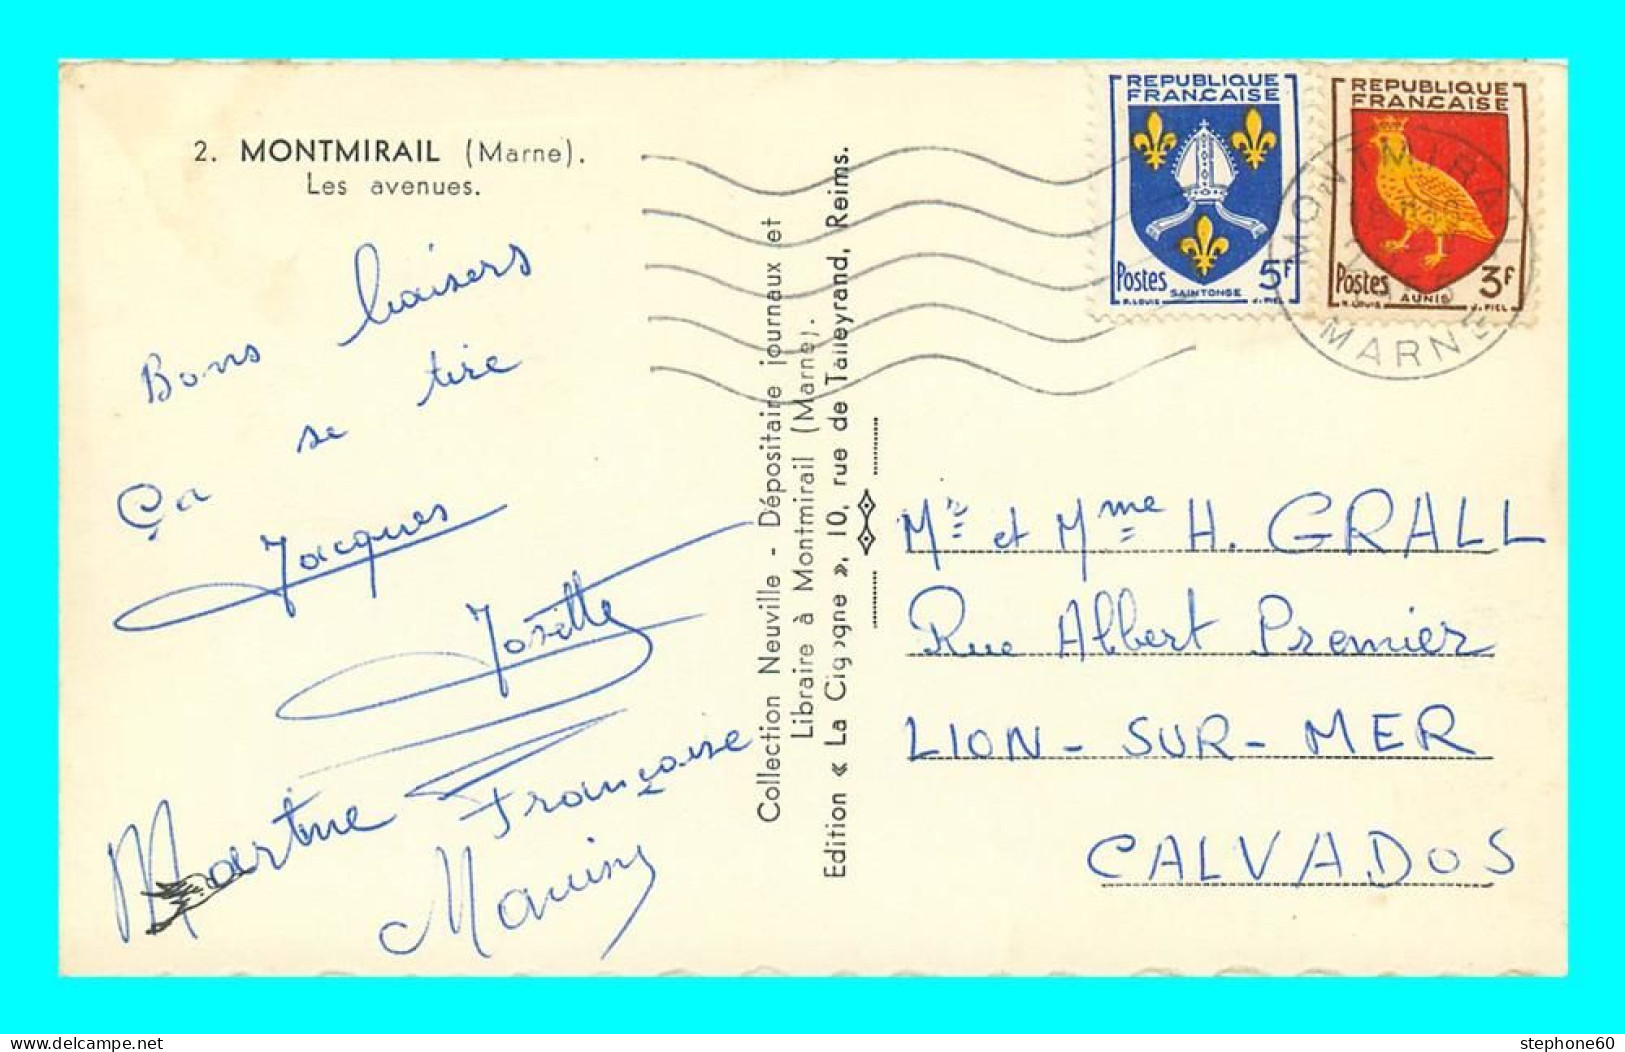 2. MONTMIRAIL (Marne).
Les avenues.
Bons baisers
Ça se tire
Jacques
Josette
Martine Françoise
Collection Neuville - Dépositaire journaux et
Libraire à Montmirail (Marne).
Edition « La Cigogne », 10, rue de Talleyrand, Reims.
REPUBLIQUE
FRANÇAISE
Postes 5F
SAINTONGE
R. LOUIS J. PIEL
REPUBLIQUE
FRANÇAISE
Postes 3F
AUNIS
R. LOUIS J. PIEL
MONTMIRAIL
MARNE
Mr et Mme H. GRALL
Rue Albert Premier
LION-SUR-MER
CALVADOS
stephone60